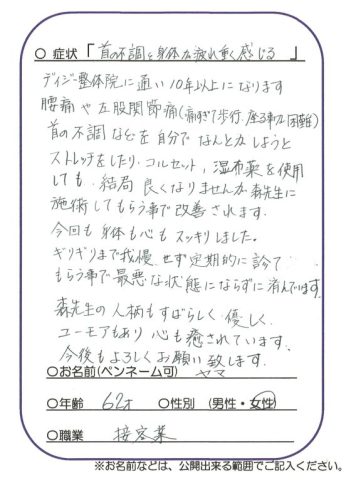 ○ 症状「首の不調と身体が疲れ重く感じる」
デイジー整体院に通い10年以上になります
腰痛や左股関節痛(痛すぎて歩行、座る事が困難)
首の不調などを自分でなんとかしようと
ストレッチをしたり、コルセット、湿布薬を使用
しても、結局良くなりませんが、森先生に
施術してもらう事で改善されます。
今回も身体も心もスッキリしました。
ギリギリまで我慢せず定期的に診て
もらう事で最悪な状態にならずに済んでいます。
森先生の人柄もすばらしく優しく、
ユーモアもあり心も癒されています。
今後もよろしくお願い致します。
○お名前(ペンネーム可) ヤマ
○年齢 62才 ○性別 (男性・女性)
○職業 接客業
※お名前などは、公開出来る範囲でご記入ください。